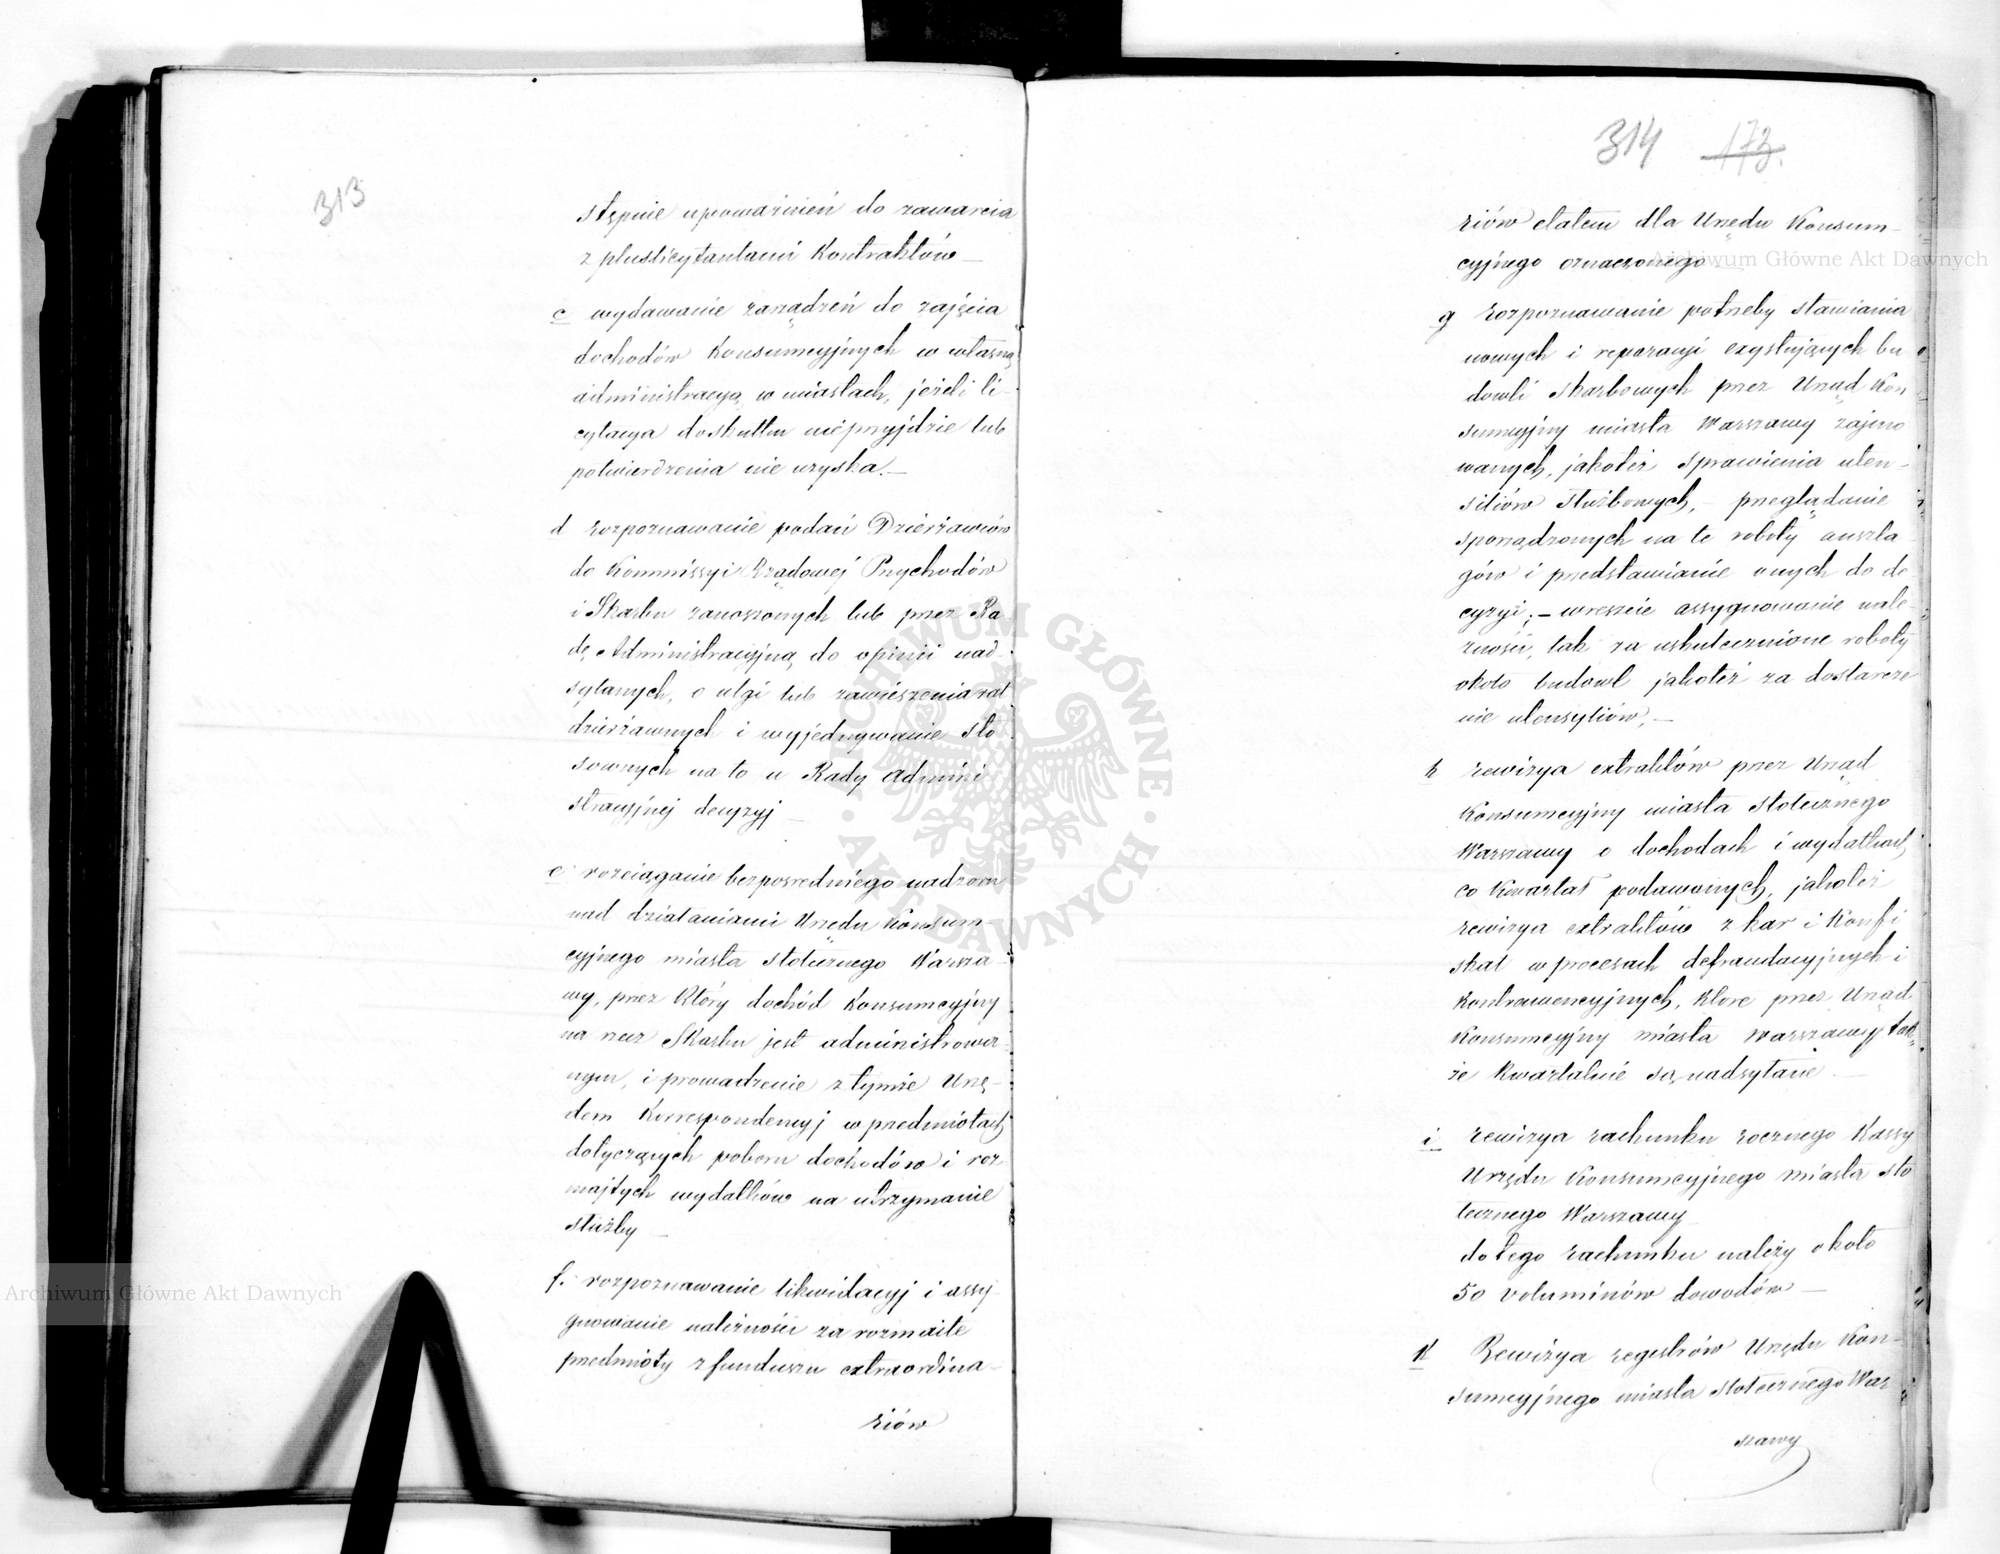 313
stępnie upoważnień do zawarcia
z plusłicytantami Kontraktów –
c wydawanie zarządzeń do zajęcia
dochodów Konsumcyjnych w własną
administracyą w miastach, jeżeli li-
cytacya doskutku nieprzyjdzie lub
potwierdzenia nie uzyska. –
d rozpoznawanie podań Dzierżawców
do Kommissyi Rządowej Przychodów
i Skarbu zanoszonych lub przez Ra
dę Administracyjną do opinii nad-
syłanych, o ulgi lub zawieszenia rat
dzierżawnych i wyjednywanie sto
sownych na to u Rady Admini
stracyjnej decyzyj –
e rozciąganie bezpośredniego nadzoru
nad działaniami Urzędu Konsum-
cyjnego miasta stołecznego Warsza-
wy, przez Który dochód Konsumcyjny
na rzecz Skarbu jest administrowa-
nym, i prowadzenie z tymże Urzę-
dem Korrespondencyj w przedmiotach
dotyczących poboru dochodów i roz
majtych wydatków na utrzymanie
służby –
f. rozpoznawanie likwidacyj i assy-
gnowanie należności za rozmaite
przedmioty z funduszu extraordina-
riów
314 173.
riów etatem dla Urzędu Konsum-
cyjnego oznaczonego –
g rozpoznawanie potrzeby stawiania
nowych i reparacyi exystujących bu
dowli skarbowych przez Urząd Kon
sumcyjny miasta Warszawy zajmo
wanych, jakoteż sprawienia uten-
siliów służbowych, – przeglądanie
sporządzonych na te roboty anszla
gów i przedstawianie onych do de
cyzyi; – wreszcie assygnowanie nale-
żności, tak za uskutecznione roboty
około budowl jakoteż za dostarcze
nie utensyliów, –
h rewizya extraktów przez Urząd
Konsumcyjny miasta stołecznego
Warszawy o dochodach i wydatkach
co Kwartał podawanych, jakoteż
rewizya extraktów z kar i Konfi
skat w procesach defraudacyjnych i
Kontrawencyjnych, które przez Urząd
Konsumcyjny miasta Warszawy tak-
że Kwartalnie są nadsyłane. –
i rewizya rachunku rocznego Kassy
Urzędu Konsumcyjnego miasta sto
łecznego Warszawy
do tego rachunku należy około
50 voluminów dowodów –
K Rewizya regestrów Urzędu Kon-
sumcyjnego miasta stołecznego War
szawy
Archiwum Główne Akt Dawnych
Archiwum Główne Akt Dawnych
ARCHIWUM GŁÓWNE · AKT DAWNYCH ·